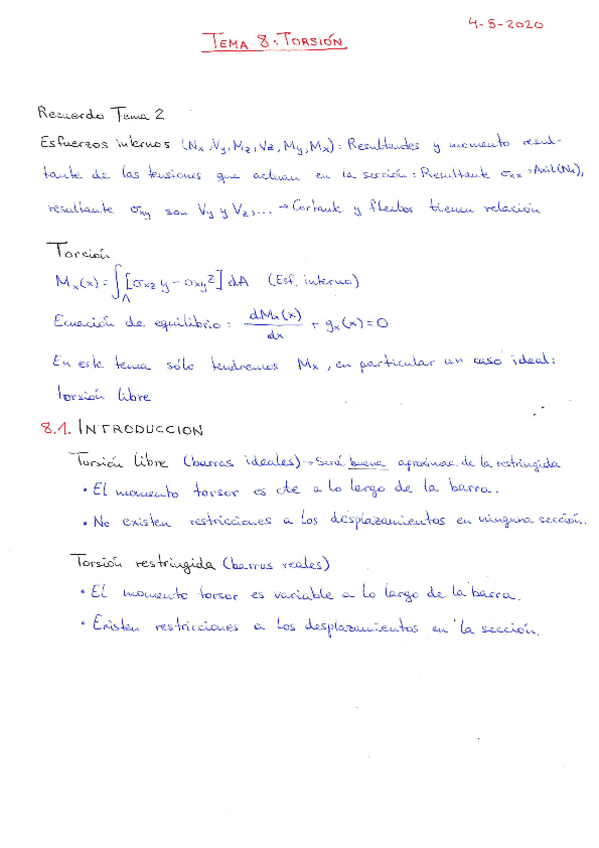 4-5-2020
TEMA 8: TORSIÓN
Recuerdo Tema 2
Esfuerzos internos (Nx, Vy, Mz, Vz, My, Mx): Resultantes y momento resul-
tante de las tensiones que actúan en la sección: Resultante σxx → Axil (Nx),
resultante σxy son Vy y Vz,... → Cortante y flector tienen relación
Torsión
Mx(x) = ∫A [σxz y - σxy z] dA (Esf. interno)
Ecuación de equilibrio: dMx(x)/dx + gx(x) = 0
En este tema sólo tendremos Mx, en particular un caso ideal:
torsión libre
8.1. INTRODUCCION
Torsión libre (barras ideales) → Será buena aproximac. de la restringida
• El momento torsor es cte a lo largo de la barra.
• No existen restricciones a los desplazamientos en ninguna sección.
Torsión restringida (barras reales)
• El momento torsor es variable a lo largo de la barra.
• Existen restricciones a los desplazamientos en la sección.